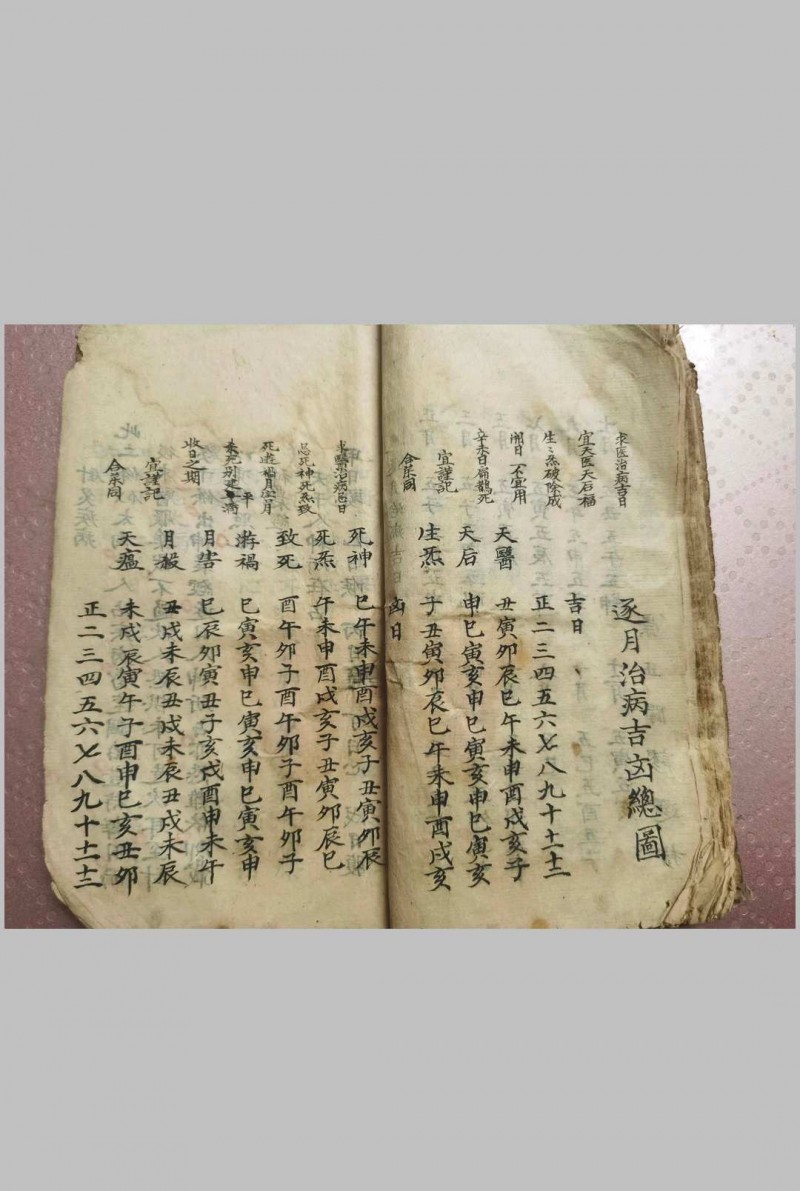 逐月治病吉凶總圖
求医治病吉日
宜天医天石福
生〻炁破除成
開日 不宜用
辛未日扁鵲死
宜謹記
吉日
正二三四五六七八九十十一十二
天醫 丑寅卯辰巳午未申酉戌亥子
天后 申巳寅亥申巳寅亥申巳寅亥
生炁 子丑寅卯辰巳午未申酉戌亥
凶日
求醫治病忌日
忌死神死炁致
死逰禍月害月
杀死别建平滿
收日之期
宜謹記
死神 巳午未申酉戌亥子丑寅卯辰
死炁 午未申酉戌亥子丑寅卯辰巳
致死 酉午卯子酉午卯子酉午卯子
游禍 巳寅亥申巳寅亥申巳寅亥申
月害 巳辰卯寅丑子亥戌酉申未午
月殺 丑戌未辰丑戌未辰丑戌未辰
天瘟 未戌辰寅午子酉申巳亥丑卯
正二三四五六七八九十十一十二